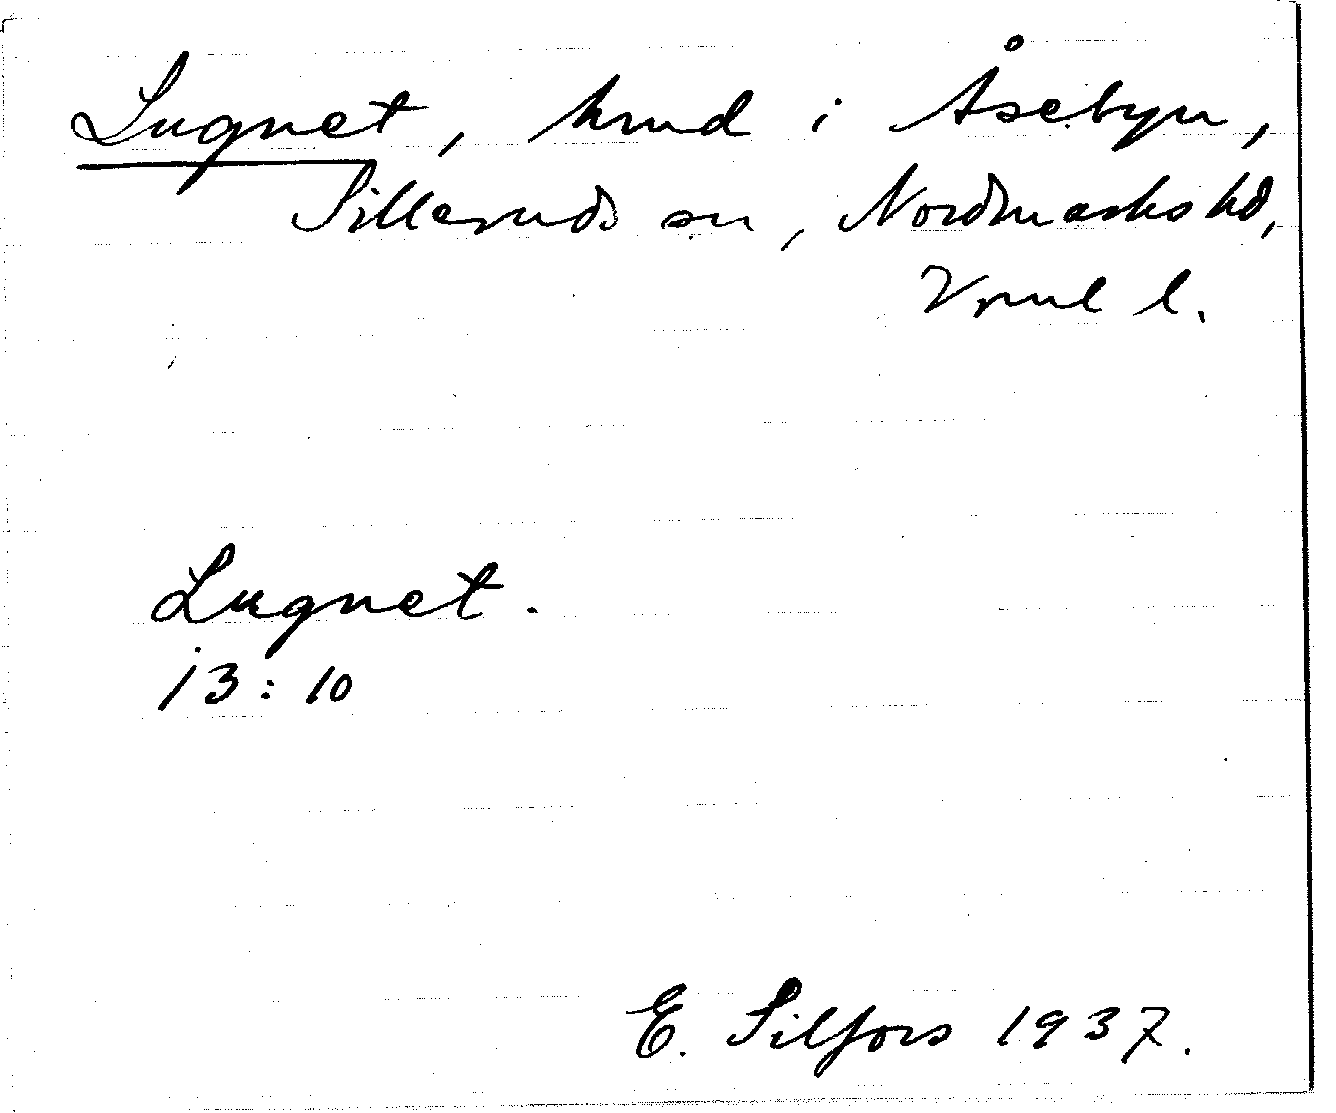 Lugnet, hmd i Åsebyn,
Silleruds sn, Nordmarks hd,
Vrml l.
Lugnet.
13:10
E. Silfors 1937.